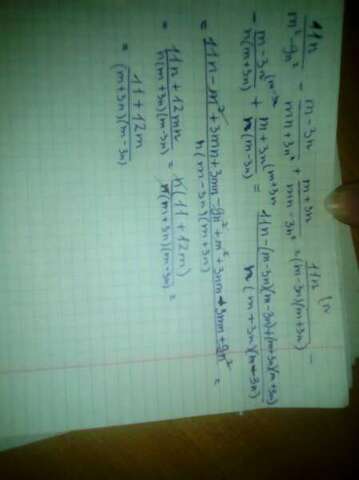 11n/(m²-9n²) - (m-3n)/(mn+3n²) + (m+3n)/(mn-3n²) = 11n/((m-3n)(m+3n)) -
- (m-3n)/(n(m+3n)) + (m+3n)/(n(m-3n)) = (11n-(m-3n)(m-3n)+(m+3n)(m+3n))/(n(m+3n)(m-3n))
= (11n-m²+3mn+3mn-9n²+m²+3nm+3nm+9n²)/(n(m-3n)(m+3n)) =
= (11n+12mn)/(n(m+3n)(m-3n)) = n(11+12m)/(n(m+3n)(m-3n)) =
= (11+12m)/((m+3n)(m-3n))